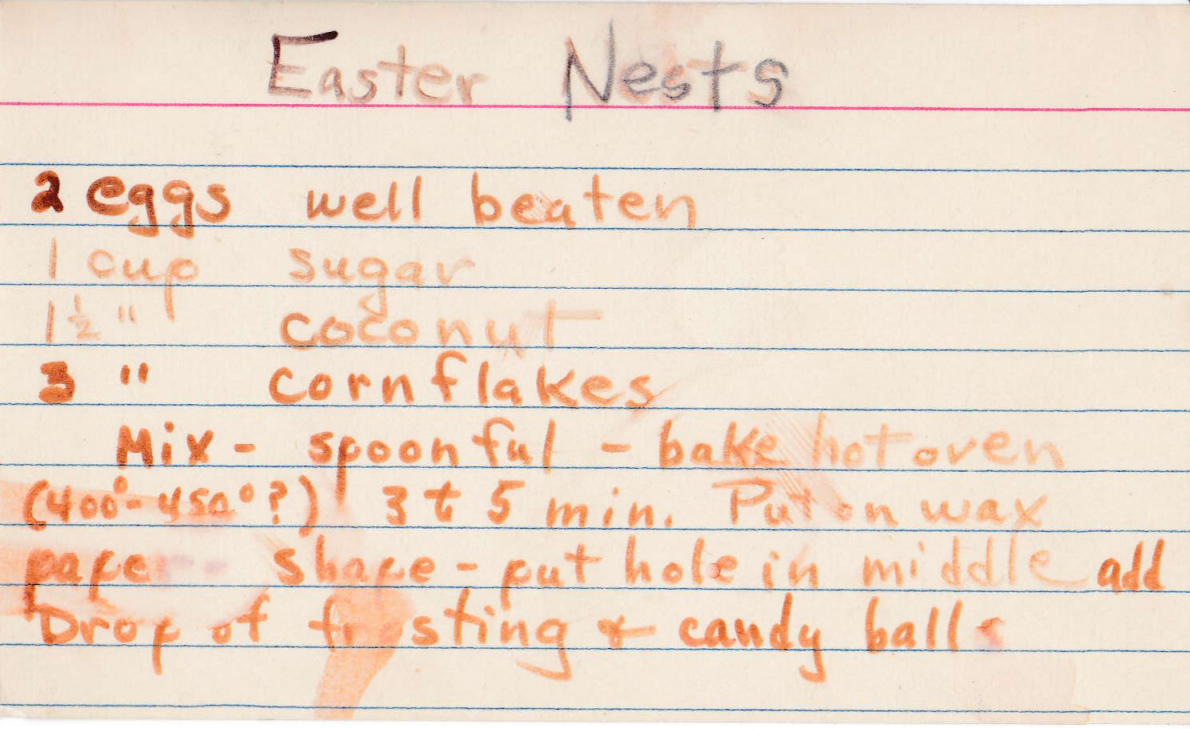 Easter Nests
2 eggs well beaten
1 cup sugar
1 1/2 " coconut
3 " cornflakes
Mix - spoonful - bake hot oven
(400° - 450°?) 3 t 5 min. Put on wax
paper - shape - put hole in middle add
Drop of frosting & candy balls